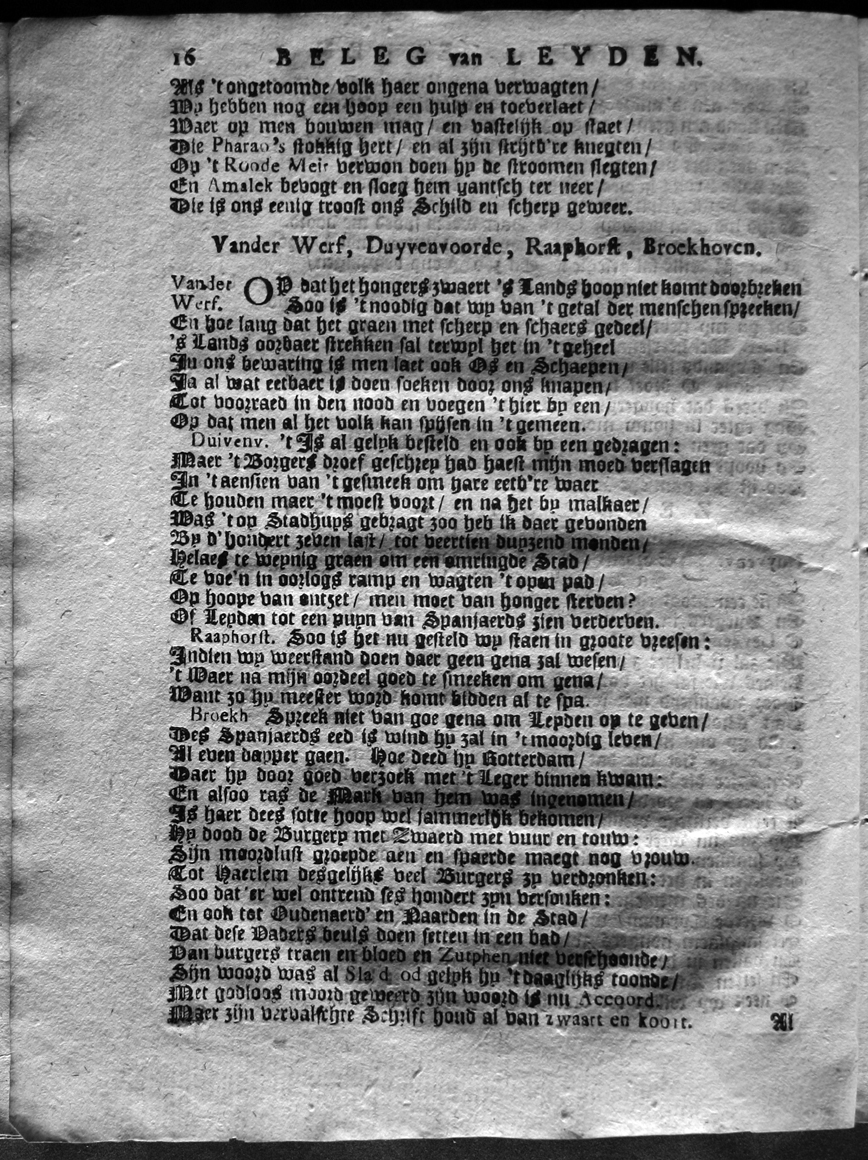 16 BELEG van LEYDEN.
Als 't ongetoomde volk haer ongena verwagten/
Wy hebben nog een hoop een hulp en toeverlaet/
Waer op men bouwen mag/ en vastelijk op staet/
Die Pharao's stokkig hert/ en al zijn strijtb're knegten/
Op 't Roode Meir verwon doen hy de stroomen slegten/
En Amalek bevogt en sloeg hem gantsch ter neer/
Die is ons eenig troost ons Schild en scherp geweer.
Vander Werf, Duyvenvoorde, Raaphorst, Broekhoven.
Vander OP dat het hongers zwaert 's Lands hoop niet komt doorbreken
Werf. Soo is 't noodig dat wy van 't getal der menschen spreeken/
En hoe lang dat het graen met scherp en schaers gedeel/
's Lands oorbaer strekken sal terwyl het in 't geheel
In ons bewaring is men laet ook Os en Schaepen/
Ja al wat eetbaer is doen soeken door ons knapen/
Tot voorraed in den nood en voegen 't hier by een/
Op dat men al het volk kan spijsen in 't gemeen.
Duivenv. 't Is al gelyk besteld en ook by een gedragen:
Maer 't Borgers droef geschrey had haest mijn moed verslagen
In 't aensien van 't gesmeek om hare eetb're waer
Te houden maer 't moest voort/ en na het by malkaer/
Was 't op Stadhuys gebragt zoo heb ik daer gevonden
By d'hondert zeven last/ tot veertien duyzend monden/
Helaes te weynig graen om een omringde Stad/
Te voe'n in oorlogs ramp en wagten 't open pad/
Op hoope van ontzet/ men moet van honger sterven?
Of Leyden tot een puyn van Spanjaerds zien verderven.
Raaphorst. Soo is het nu gesteld wy staen in groote vreesen:
Indien wy weerstand doen daer geen gena zal wesen/
't Waer na mijn oordeel goed te smeeken om gena/
Want zo hy meester word komt bidden al te spa.
Broekh Spreek niet van goe gena om Leyden op te geven/
Des Spanjaerds eed is wind hy zal in 't moordig leven/
Al even dapper gaen. Hoe deed hy Rotterdam/
Daer hy door goed verzoek met 't Leger binnen kwam:
En alsoo ras de Mark van hem was ingenomen/
Is haer dees sotte hoop wel jammerlijk bekomen/
Hy dood de Burgery met Zwaerd met vuur en touw:
Sijn moordlust groeyde aen en spaerde maegt nog vrouw.
Tot Haerlem desgelijks veel Burgers zy verdronken:
Soo dat 'er wel ontrend ses hondert zyn versonken:
En ook tot Oudenaerd' en Naarden in de Stad/
Dat dese Vaders beuls doen setten in een bad/
Van burgers traen en bloed en Zutphen niet verschoonde/
Sijn woord was al gelyk hy 't daaglijks toonde/
Met godloos moord geweerd zijn woord is nu Accoord.
Maer zijn vervalschte Schrift houd al van zwaart en koort.
Al